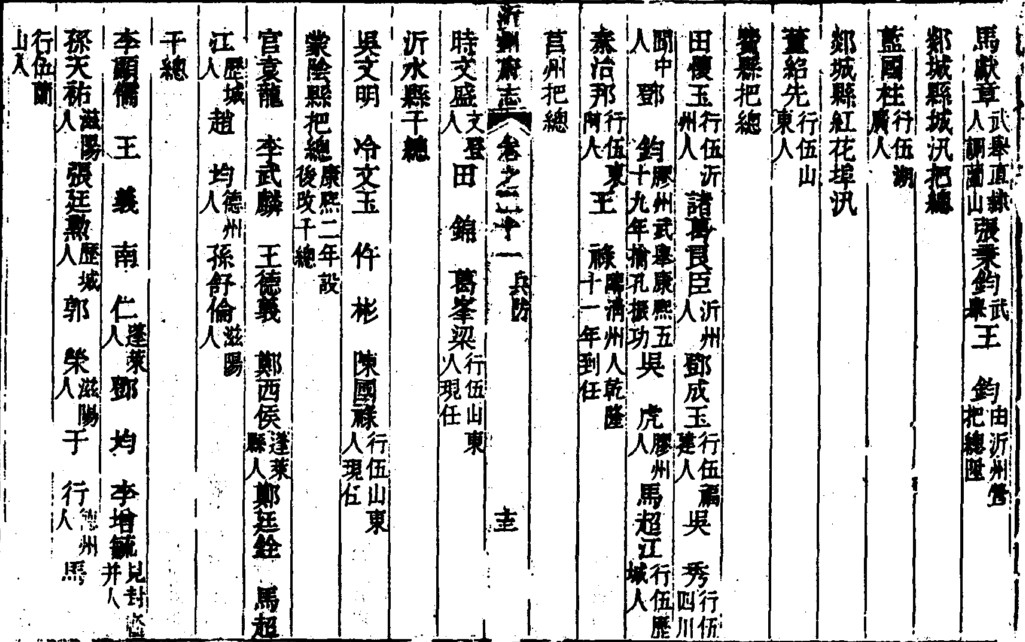 馬獻章武舉直隸人調蘭山張秉鈞武舉王鈞由沂州營把總陞
郯城縣城汛把總
藍國柱行伍湖廣人
郯城縣紅花埠汛
董紹先行伍山東人
費縣把總
田懷玉行伍沂州人諸葛良臣沂州人鄧成玉行伍福建人吳秀行伍四川
閬中人鄧鈞膠州武舉康熙五十九年擒孔振功吳虎膠州人馬超江行伍歷城人
秦治邦行伍東阿人王祿濟州人乾隆十一年到任
莒州把總
沂州府志 卷之二十一 兵防 圭
時文盛文登人田錦葛峯梁行伍山東人現任
沂水縣千總
吳文明冷文玉仵彬陳國祿行伍山東人現任
蒙陰縣把總康熙二年設後改千總
官袞龍李武麟王德義鄭西侯蓬萊縣人鄭廷銓馬超
江歷城人趙均德州人孫舒倫滋陽人
千總
李顯儒王義南仁蓬萊人鄧均李增毓見封人
孫天祐滋陽人張廷勲歷城人郭榮滋陽人于行德州人馬
行伍蘭山人